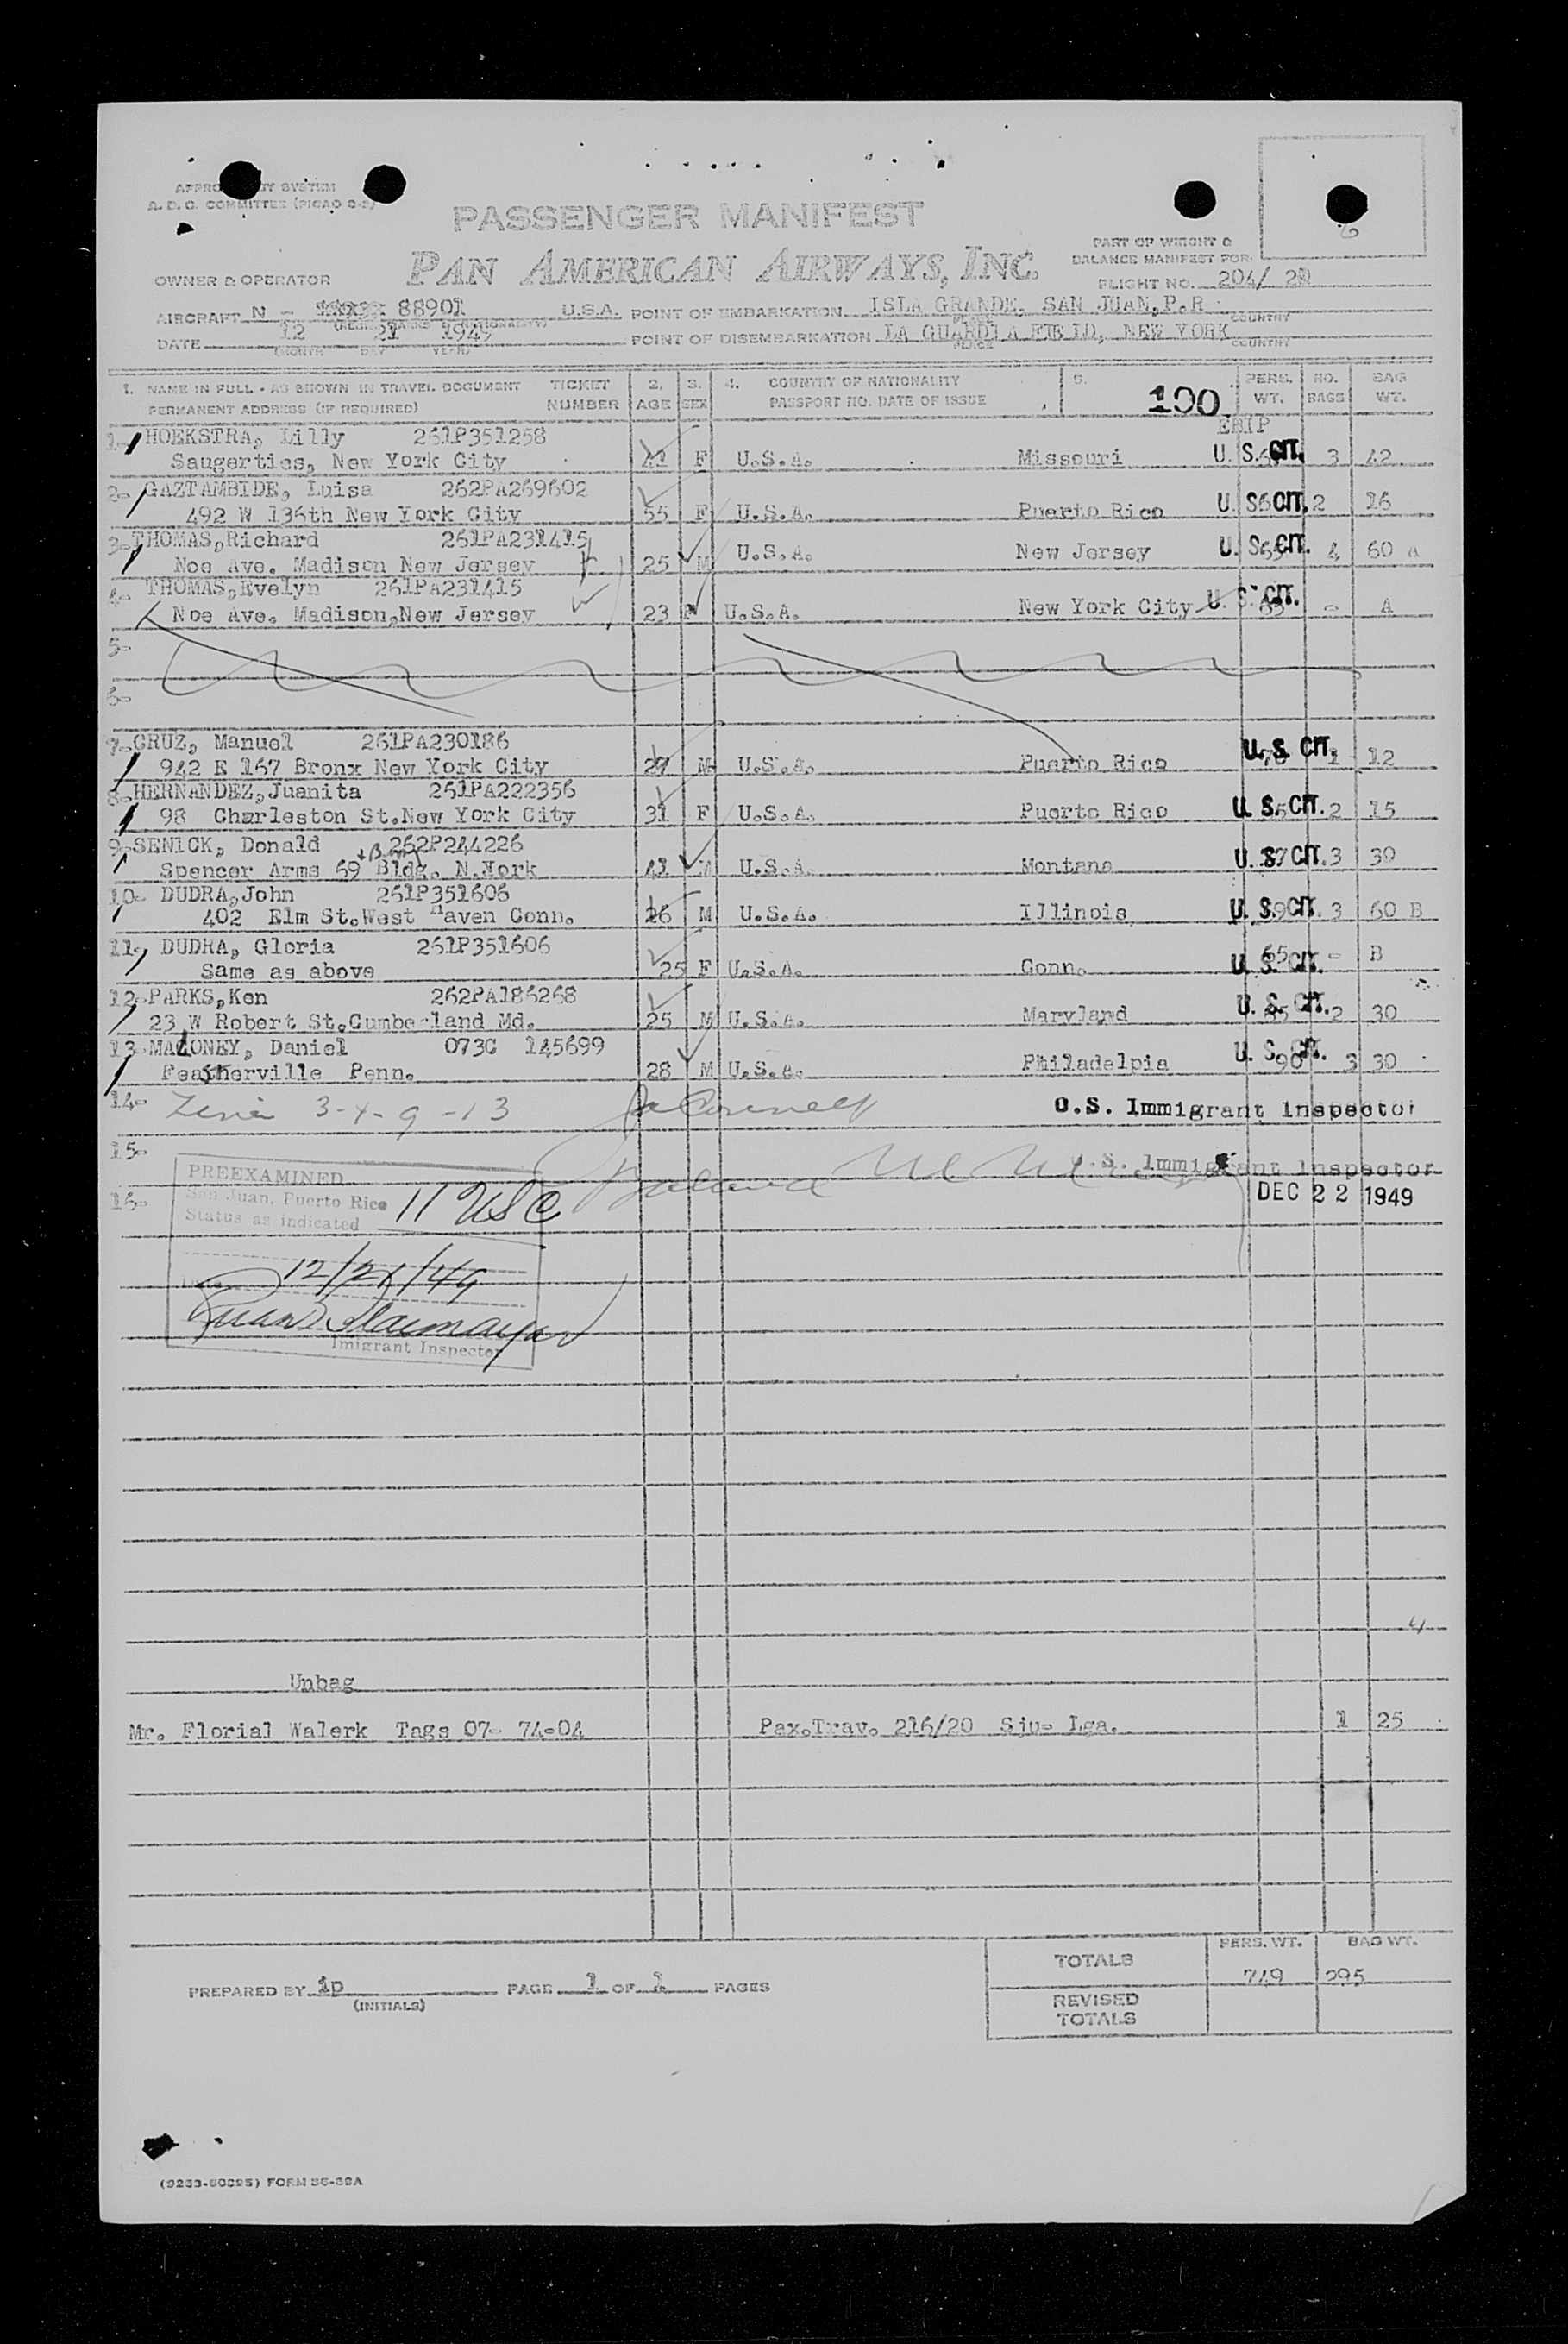 APPRO BY SYSTEM
A. D. C. COMMITTEE (PICAO 3-3)
PASSENGER MANIFEST
PART OF WEIGHT &
BALANCE MANIFEST FOR
OWNER & OPERATOR PAN AMERICAN AIRWAYS, INC. FLIGHT NO. 204/
AIRCRAFT N - 88901 U.S.A. POINT OF EMBARKATION ISLA GRANDE, SAN JUAN, P.R
COUNTRY
DATE 12 21 1949 POINT OF DISEMBARKATION LA GUARDIA FIELD, NEW YORK
(MONTH DAY YEAR) PLACE COUNTRY
1. NAME IN FULL - AS SHOWN IN TRAVEL DOCUMENT TICKET 2. 3. 4. COUNTRY OF NATIONALITY 5. PERS. NO. BAG
PERMANENT ADDRESS (IF REQUIRED) NUMBER AGE SEX PASSPORT NO. DATE OF ISSUE 100 WT. BAGS WT.
1- HOEKSTRA, Lilly 261P351258
Saugerties, New York City 41 F U.S.A. Missouri U. S. CIT. 3 42
2- GAZTAMBIDE, Luisa 262PA269602
492 W 136th New York City 55 F U.S.A. Puerto Rico U. S. CIT. 2 16
3- THOMAS,Richard 261PA231415
Noe Ave. Madison New Jersey 25 M U.S.A. New Jersey U. S. CIT. 4 60 A
4- THOMAS,Evelyn 261PA231415
Noe Ave. Madison,New Jersey 23 F U.S.A. New York City U. S. CIT. - A
5-
6-
7- CRUZ, Manuel 261PA230186
942 E 167 Bronx New York City 29 M U.S.A. Puerto Rico U. S. CIT. 1 12
8- HERNANDEZ,Juanita 261PA222356
98 Charleston St.New York City 31 F U.S.A. Puerto Rico U. S. CIT. 2 15
9- SENICK, Donald 262P244226
Spencer Arms 69 Bldg. N.York 41 M U.S.A. Montana U. S. CIT. 3 30
10- DUDRA,John 261P351606
402 Elm St.West Haven Conn. 26 M U.S.A. Illinois U. S. CIT. 3 60 B
11- DUDRA, Gloria 261P351606
Same as above 25 F U.S.A. Conn. 65 U. S. CIT. - B
12- PARKS,Ken 262PA186268
23 W Robert St.Cumberland Md. 25 M U.S.A. Maryland U. S. CIT. 85 2 30
13- MALONEY, Daniel 073C 145699
Feasterville Penn. 28 M U.S.A. Philadelpia U. S. CIT. 90 3 30
14- 3-4-9-13 U.S. Immigrant Inspector
15- U.S. Immigrant Inspector
16- DEC 22 1949
PREEXAMINED
San Juan, Puerto Rico
Status as indicated 11 USC
12/21/49
Imigrant Inspector
4
Unbag
Mr. Florial Walerk Tags 07- 74-04 Pax.Trav. 216/20 Sju- Lga. 1 25
TOTALS PERS. WT. BAG WT.
749 295
PREPARED BY ip PAGE 1 OF 1 PAGES
(INITIALS)
REVISED
TOTALS
(9233-50895) FORM 36-39A